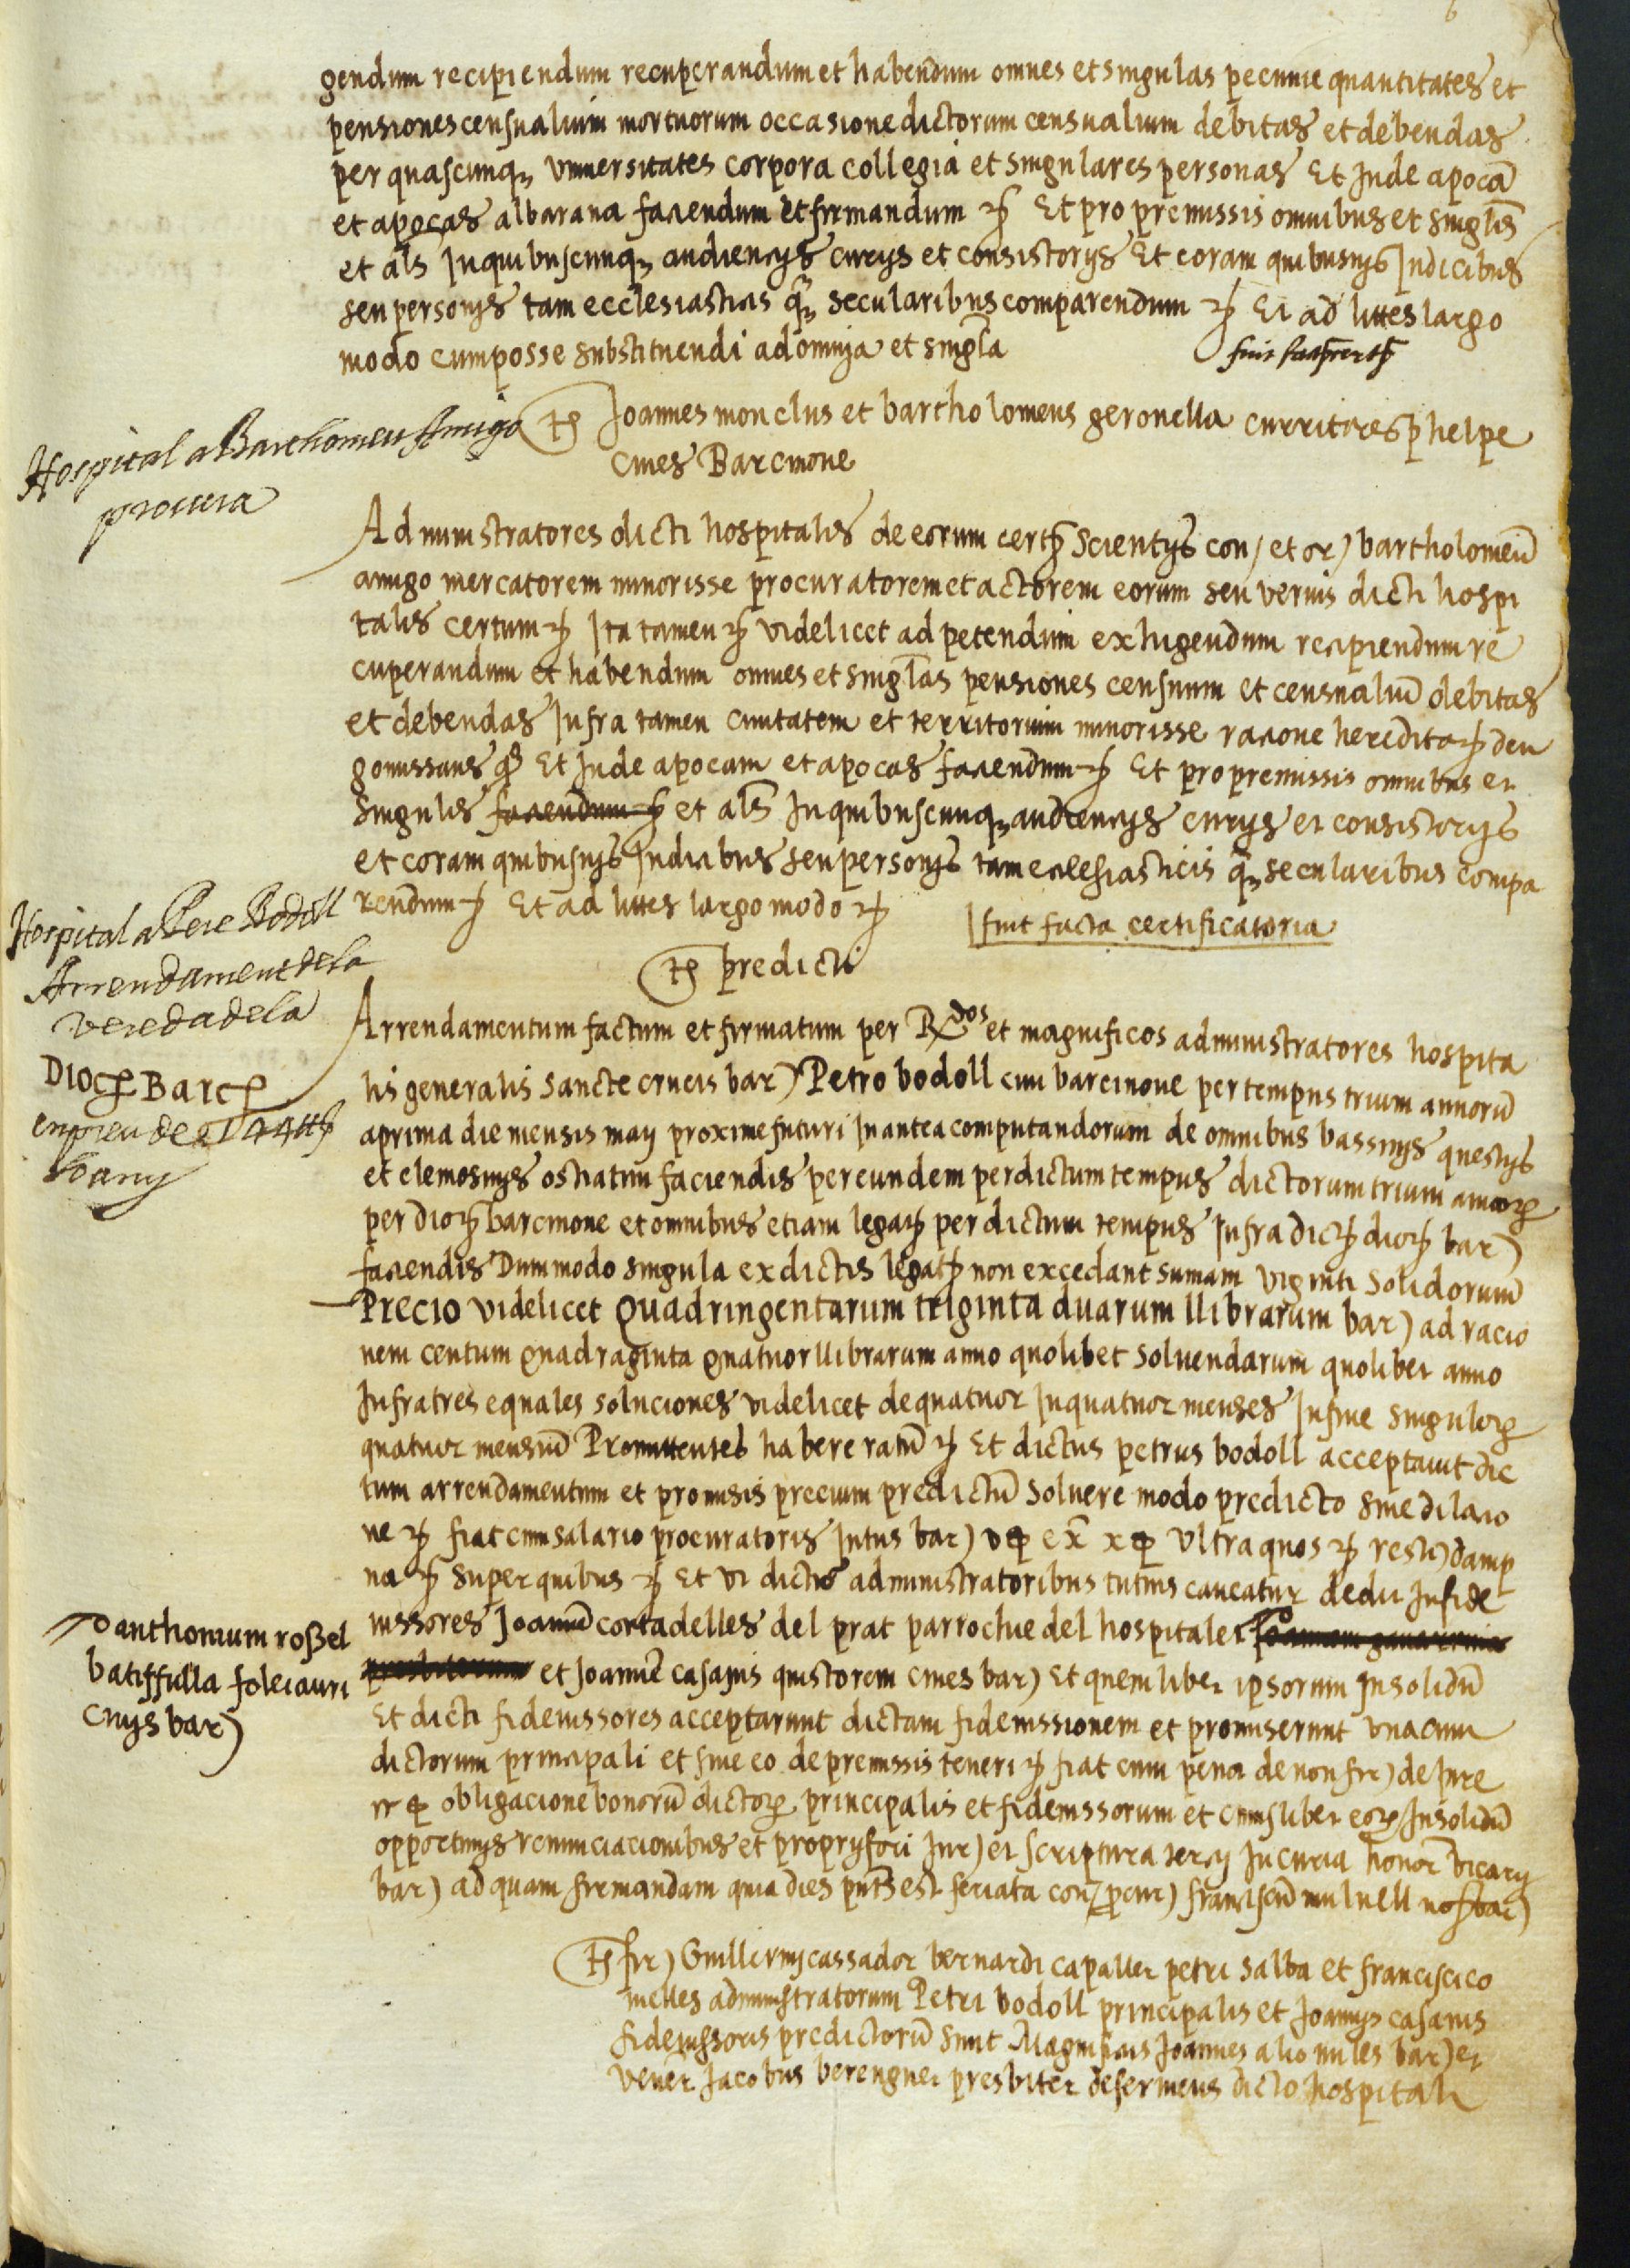 gendum recipiendum recuperandum et habendum omnes et singulas pecunie quantitates et
pensiones censualium mortuorum occasione dictorum censualium debitas et debendas
per quascunq, universitates corpora collegia et singulares personas Et Inde apocā
et apocas albarana faciendum et firmandum Et pro premissis omnibus et singlis
et als In quibuscunq, audiencijs curijs et consistorijs Et coram quibusvis Iudicibus
seu personis tam ecclesiasticis q̄ secularibus comparendum Et ad lites largo
modo cum posse substituendi ad omnia et singla
fuit
Hospital a Barthomeu Amigo
procura
Ts Joannes monclus et bartholomeus geronella curritores
cives Barcinone
Administratores dicti hospitalis de eorum certis Scientijs con) et or) bartholomeū
amigo mercatorem minorisse procuratorem et actorem eorum seu verius dicti hospi
talis certum Ita tamen videlicet ad petendum exhigendum recipiendum re
cuperandum et habendum omnes et singlas pensiones censuum et censualiū debitas
et debendas Infra tamen civitatem et territorium minorisse racione
Et Inde apocam et apocas faciendum Et pro premissis omnibus et
singulis faciendum et als In quibuscunq, audiencijs curijs et consistorijs
et coram quibusvis Iudicibus seu personis tam ecclesiasticis q̄ secularibus compa
rendum Et ad lites largo modo
fuit facta certificatoria
Ts predicti
Hospital a Pere Bodoll
Arrendament dela
vereda dela
Dioc Barc
en preu de
Arrendamentum factum et firmatum per Rdos et magnificos administratores hospita
lis generalis sancte crucis bar) Petro bodoll civi barcinone per tempus trium annorū
a prima die mensis maij proxime futuri In antea computandorum de omnibus bassinis questis
et elemosinis ostiatim faciendis per eundem per dictum tempus dictorum trium annor
per dioc barcinone et omnibus etiam legatis per dictum tempus Infra dict dioc bar)
faciendis Dummodo singula ex dictis legatis non excedant sumam viginti solidorum
Precio videlicet Quadringentarum triginta duarum llibrarum bar) ad racio
nem centum quadraginta quatuor llibrarum anno quolibet solvendarum quolibet anno
Infra tres equales soluciones videlicet de quatuor In quatuor menses In fine singulor
quatuor mensiū Promittentes habere ratū Et dictus petrus bodoll acceptavit dic
tum arrendamentum et promisis precium predictū solvere modo predicto sine dilacio
ne fiat cum salario procuratoris Intus bar) v ex x Ultra quos resti) damp
na super quibus Et ut dictis administratoribus tutius caveatur dedit In fide
iussores Joannē cortadelles del prat parrochie del hospitalet
et Joannē casanis quistorem cives bar) Et quemlibet ipsorum Insolidū
anthonium rossel
batiffulla folei auri
civis bar)
Et dicti fideiussores acceptarunt dictam fideiussionem et promiserunt una cum
dictorum principali et sine eo de premissis teneri fiat cum pena de non fir) de Iure
obligacione bonorū dictor principalis et fideiussorum et cuiuslibet eor Insolidū
opportunis renunciacionibus et proprij fori Iur) et scriptura tercij In curia honor vicarij
bar) ad quam firmandam quia dies pnts est feriata con) procur) franciscū mulnell not bar)
Ts fir) Guillermi cassador bernardi capaller petri salba et francisci co
melles administratorum Petri bodoll principalis et Joannis casanis
fideiussoris predictorū sunt Magnificus Joannes alio miles bar) et
vener Jacobus berenguer presbiter deserviens dicto hospitali